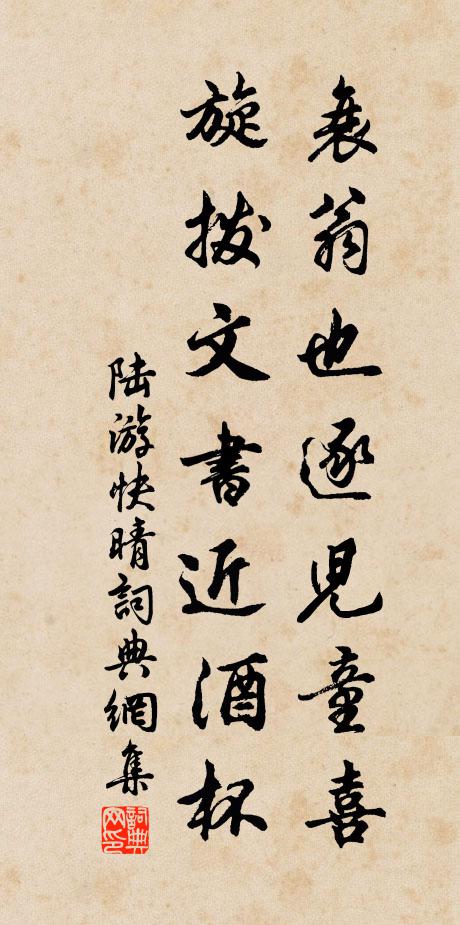 衰翁也逐兒童喜
旋撥文書近酒杯
陸游快晴詞典網集
詞典網印